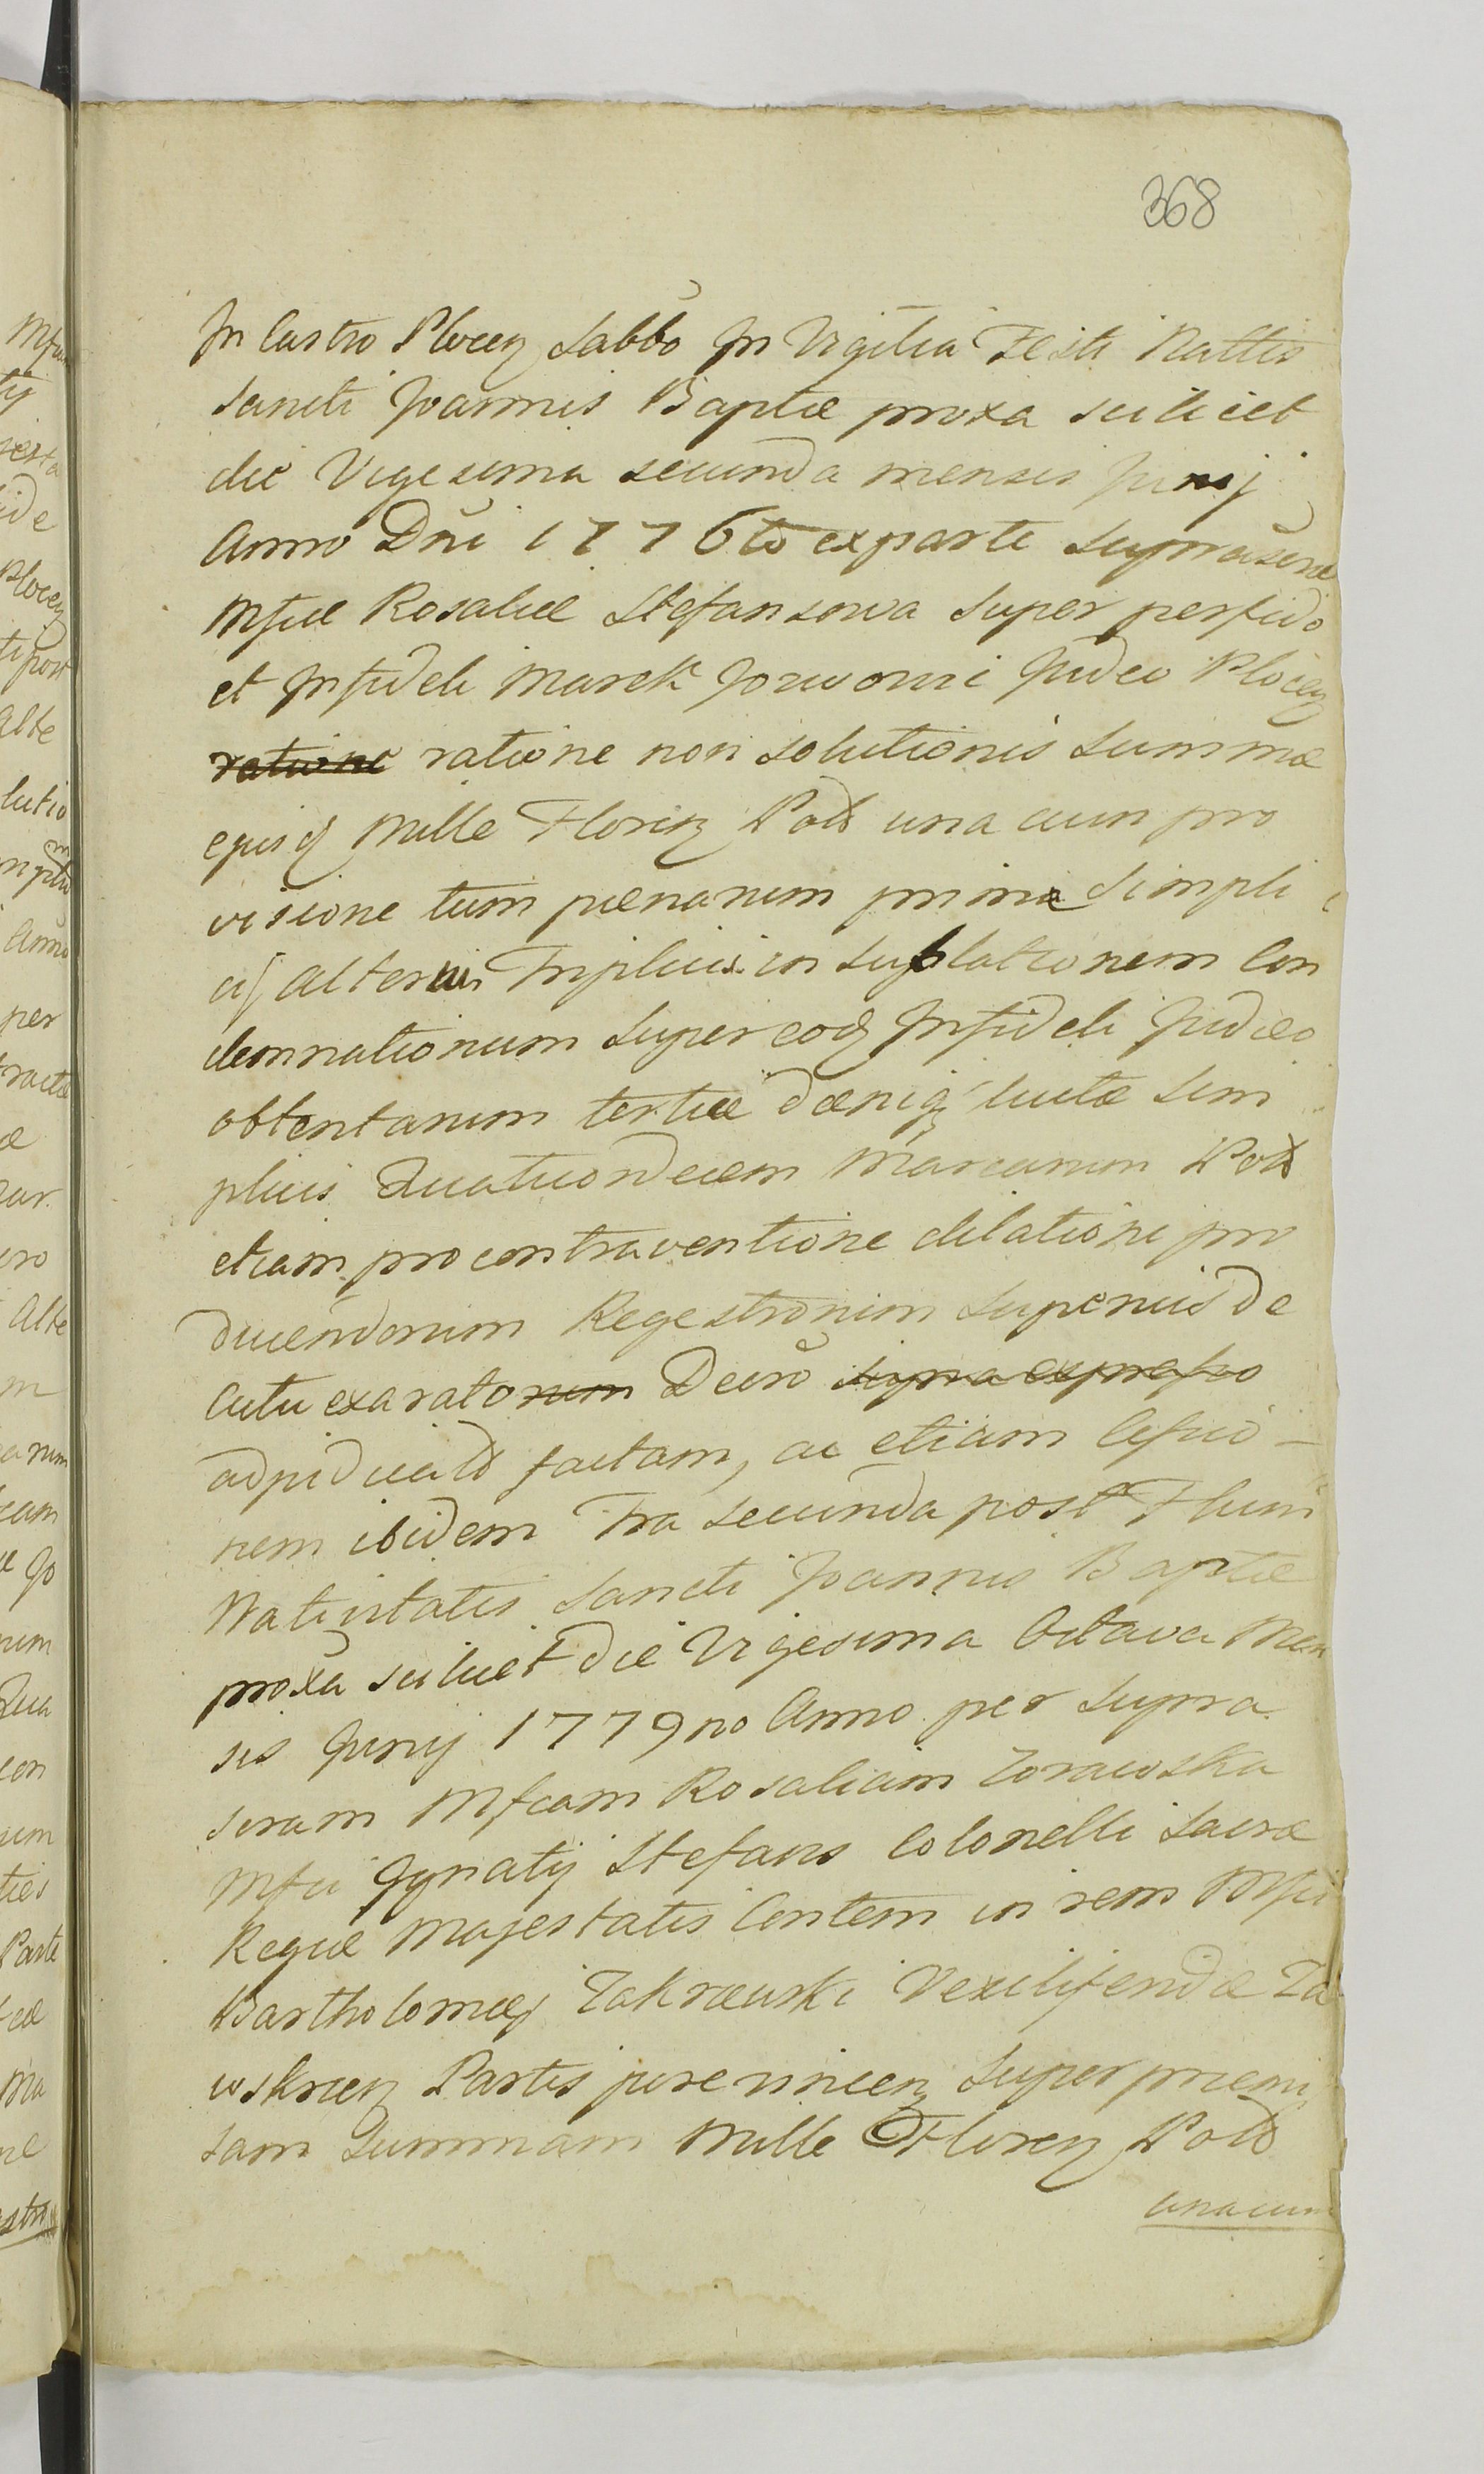 368
In Castro Plocen Sabbo In Vigilia Festi Nattis
Sancti Joannis Baptae proxa scilicet
die Vigesima secunda mensis Junij
Anno Dni 1776to ex parte suprascrae
Mfcae Rosaliae Stefansowa super perfido
et Infideli Marek Judeo Plocen
ratione ratione non solutionis summae
ejusq Mille Floren Pols una cum pro
visione tum paenarum primae simpli
cis alterius Triplicis in sublationem Con
demnationum super eod Infideli Judaeo
obtentarum tertiae daeniq luitae sim
plicis Quatuordecem Marcarum Pols
etiam pro contraventione dilationi pro
ducendorum Regestrorum superius de
cutu exaratorum Decro supra expresso
adjudicatas factam, ac etiam Cessio-
nem ibidem Fra secunda post Fhum
Nativitatis Sancti Joannis Baptae
proxa scilicet die Vigesima Octava Men
sis Junij 1779no Anno per supra
scram Mfcam Rosaliam Zorawska
Mfci Ignatij Stefans Colonelli Sacrae
Regiae Majestatis Contem in rem Mfci
Bartholomaej Zakrzewski Vexilliferidae Za
wskrzen Partis jure vincen super praemis
sam Summam Mille Floren Pols
unacum